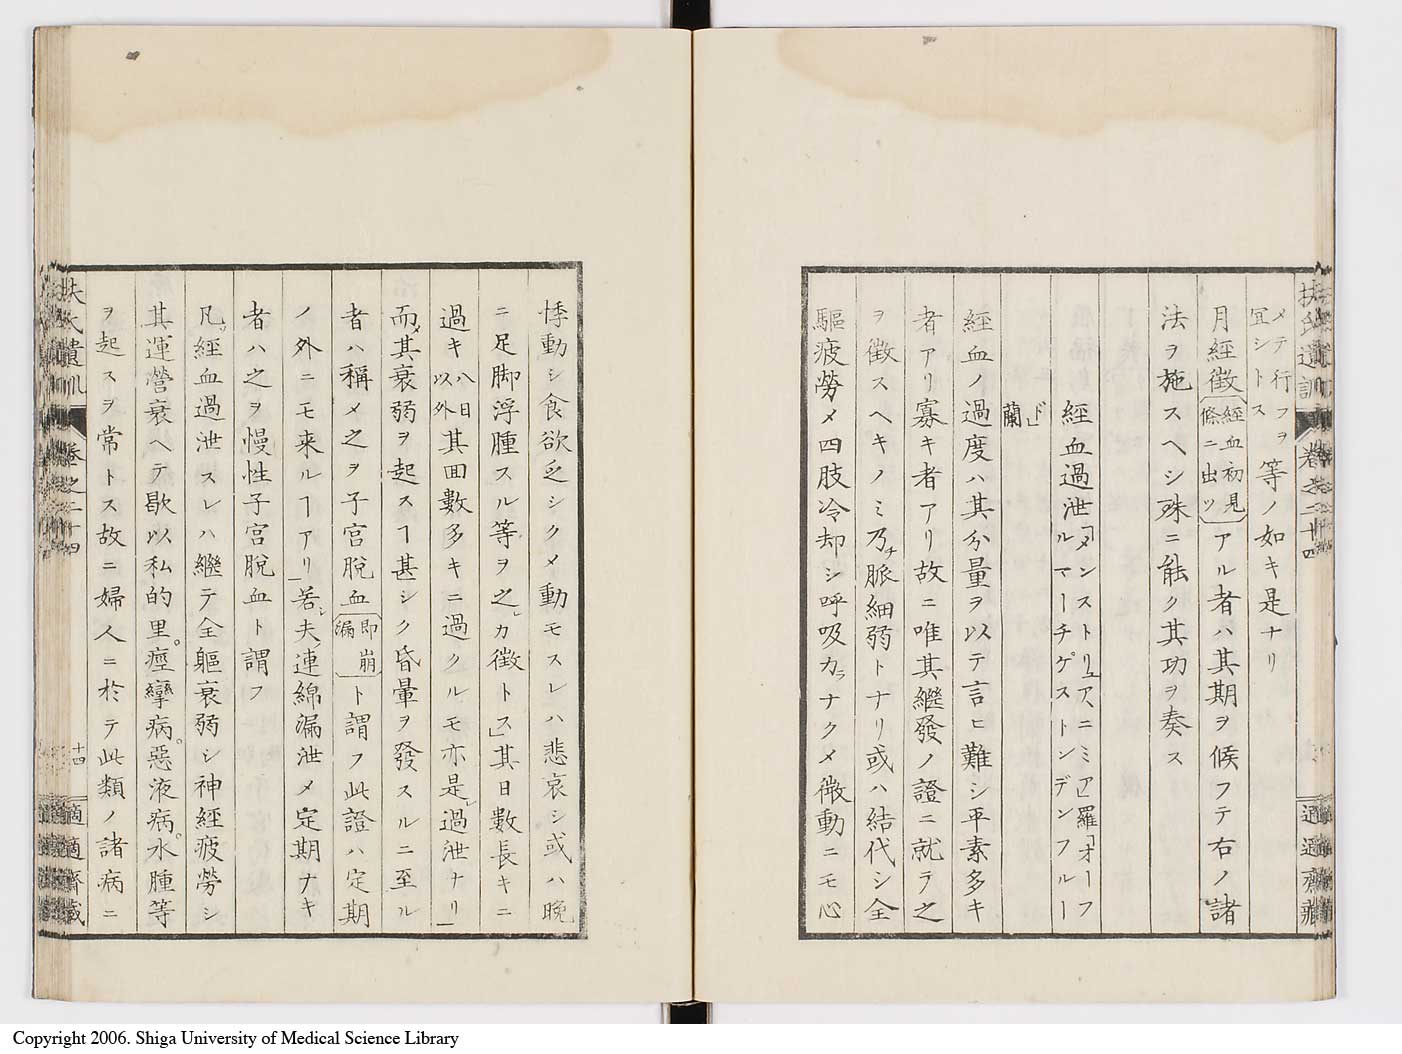 メテ行フヲ
冝シトス
等ノ如キ是ナリ
月經徴
經血初見
條ニ出ツ
アル者ハ其期ヲ候フテ右ノ諸
法ヲ施スヘシ殊ニ能ク其功ヲ奏ス
經血過泄
「メンストリュアニミア」羅「オーフ
ルマーチゲストンデンフルー
ド」
蘭
經血ノ過度ハ其分量ヲ以テ言ヒ難シ平素多キ
者アリ寡キ者アリ故ニ唯其繼發ノ證ニ就ラ之
ヲ徴スヘキノミ乃チ脈細弱トナリ或ハ結代シ全
軀疲勞メ四肢冷却シ呼吸カラナクメ微動ニモ心
悸動シ食欲乏シクメ動モスレハ悲哀シ或ハ晩
ニ足脚浮腫スル等ヲ之カ徴トス」其日數長キニ
過キ
八日
以外
其回數多キニ過クルモ亦是過泄ナリ」
而メ其衰弱ヲ起スヿ甚シク昏暈ヲ發スルニ至ル
者ハ稱メ之ヲ子宮脫血
即崩
漏
ト謂フ此證ハ定期
ノ外ニモ来ルヿアリ」若シ夫連綿漏泄メ定期ナキ
者ハ之ヲ慢性子宮脫血ト謂フ
凡ソ經血過泄スレハ繼テ全軀衰弱シ神經疲勞シ
其運營衰ヘテ歇以私的里。痙攣病。惡液病。水腫等
ヲ起スヲ常トス故ニ婦人ニ於テ此類ノ諸病ニ
扶氏遺訓
卷之二十四
十四
適適齋藏
Copyright 2006. Shiga University of Medical Science Library